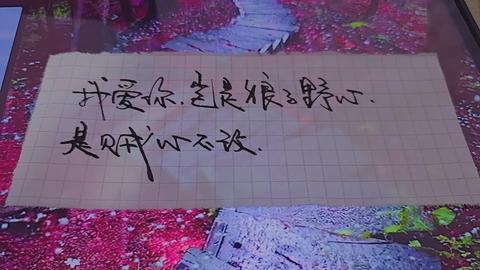 我爱你.岂是狼子野心.
是贼心不改.